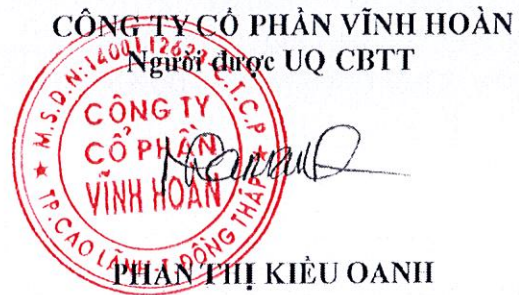 CÔNG TY CỔ PHẦN VĨNH HOÀN
Người được UQ CBTT
M.S.D.N:1400112623-C.T.C.P
CÔNG TY
CỔ PHẦN
VĨNH HOÀN
TP.CAO LÃNH-T.ĐỒNG THÁP
PHAN THỊ KIỀU OANH